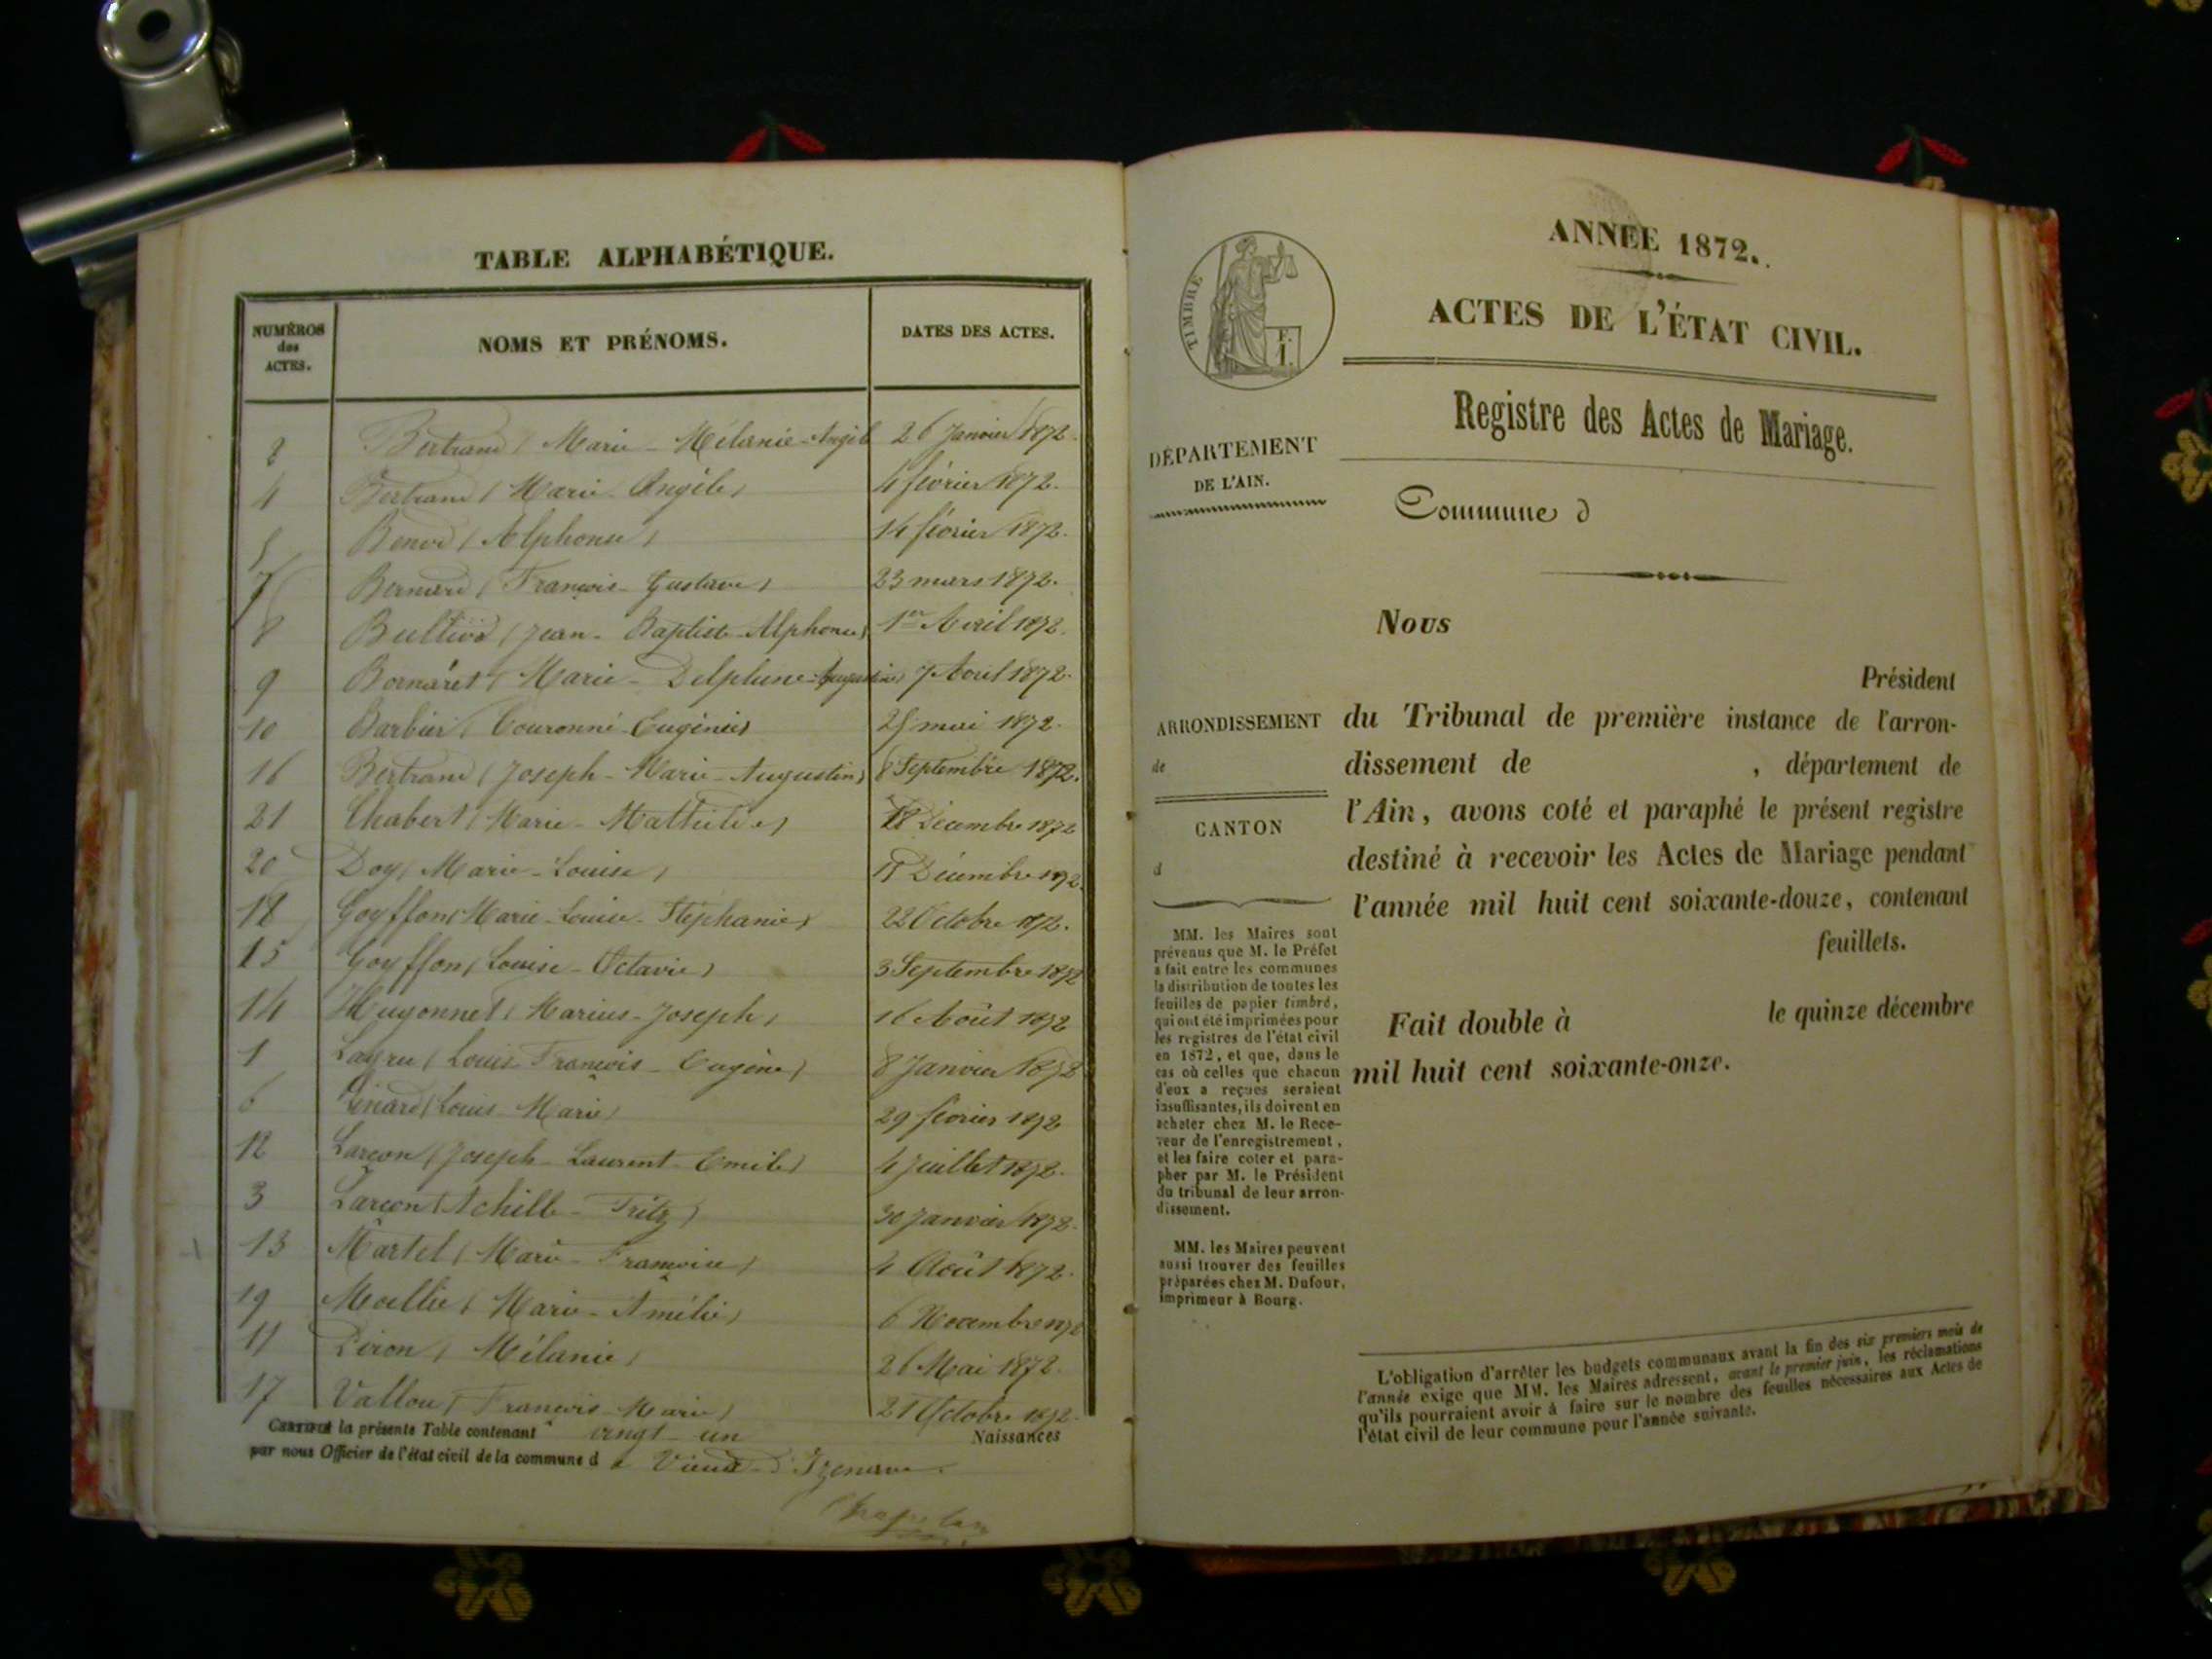 TABLE ALPHABÉTIQUE.
NUMÉROS
des
ACTES.
NOMS ET PRÉNOMS.
DATES DES ACTES.
2 Bertrand (Marie-Mélanie-Angèle 26 Janvier 1872.
4 Bertrand (Marie-Angèle) 4 février 1872.
5 Benod (Alphonse) 14 février 1872.
7 Bernard (François-Gustave) 23 mars 1872.
8 (Jean-Baptiste-Alphonse) 1er Avril 1872.
9 Bornaret (Marie-Delphine-Augustine) 7 Avril 1872.
10 Barbier (Couronné-Eugénie) 25 mai 1872.
16 Bertrand (Joseph-Marie-Augustin) 8 Septembre 1872.
21 Chabert (Marie-Mathilde) Décembre 1872
20 Doy (Marie-Louise) Décembre 1872.
18 Goyffon (Marie-Louise-Stéphanie) 22 Octobre 1872.
15 Goyffon (Louise-Octavie) 3 Septembre 1872
14 Hugonnet (Marius-Joseph) 16 Août 1872
1 (Louis-François-Eugène) 8 Janvier 1872
6 (Louis-Marie) 29 février 1872
12 Larçon (Joseph-Laurent-Emile) 4 Juillet 1872.
3 Larçon (Achille-Fritz) 30 Janvier 1872.
13 Martel (Marie-Françoise) 4 Août 1872.
19 (Marie-Amélie) 6 Novembre 1872
11 Piron (Mélanie) 26 Mai 1872.
17 Vallou (François-Marie) 21 Octobre 1872.
CERTIFIÉ la présente Table contenant vingt-un Naissances
par nous Officier de l'état civil de la commune d e Vieux-d'Izenave.
TIMBRE
F.
1.
ANNÉE 1872.
ACTES DE L'ÉTAT CIVIL.
Registre des Actes de Mariage.
DÉPARTEMENT
DE L'AIN.
Commune d
Nous
Président
ARRONDISSEMENT
de
CANTON
d
du Tribunal de première instance de l'arron-
dissement de , département de
l'Ain, avons coté et paraphé le présent registre
destiné à recevoir les Actes de Mariage pendant
l'année mil huit cent soixante-douze, contenant
feuillets.
Fait double à le quinze décembre
mil huit cent soixante-onze.
MM. les Maires sont
prévenus que M. le Préfet
a fait entre les communes
la distribution de toutes les
feuilles de papier timbré,
qui ont été imprimées pour
les registres de l'état civil
en 1872, et que, dans le
cas où celles que chacun
d'eux a reçues seraient
insuffisantes, ils doivent en
acheter chez M. le Rece-
veur de l'enregistrement,
et les faire coter et para-
pher par M. le Président
du tribunal de leur arron-
dissement.
MM. les Maires peuvent
aussi trouver des feuilles
préparées chez M. Dufour,
imprimeur à Bourg.
L'obligation d'arrêter les budgets communaux avant la fin des six premiers mois de
l'année exige que MM. les Maires adressent, avant le premier juin, les réclamations
qu'ils pourraient avoir à faire sur le nombre des feuilles nécessaires aux Actes de
l'état civil de leur commune pour l'année suivante.